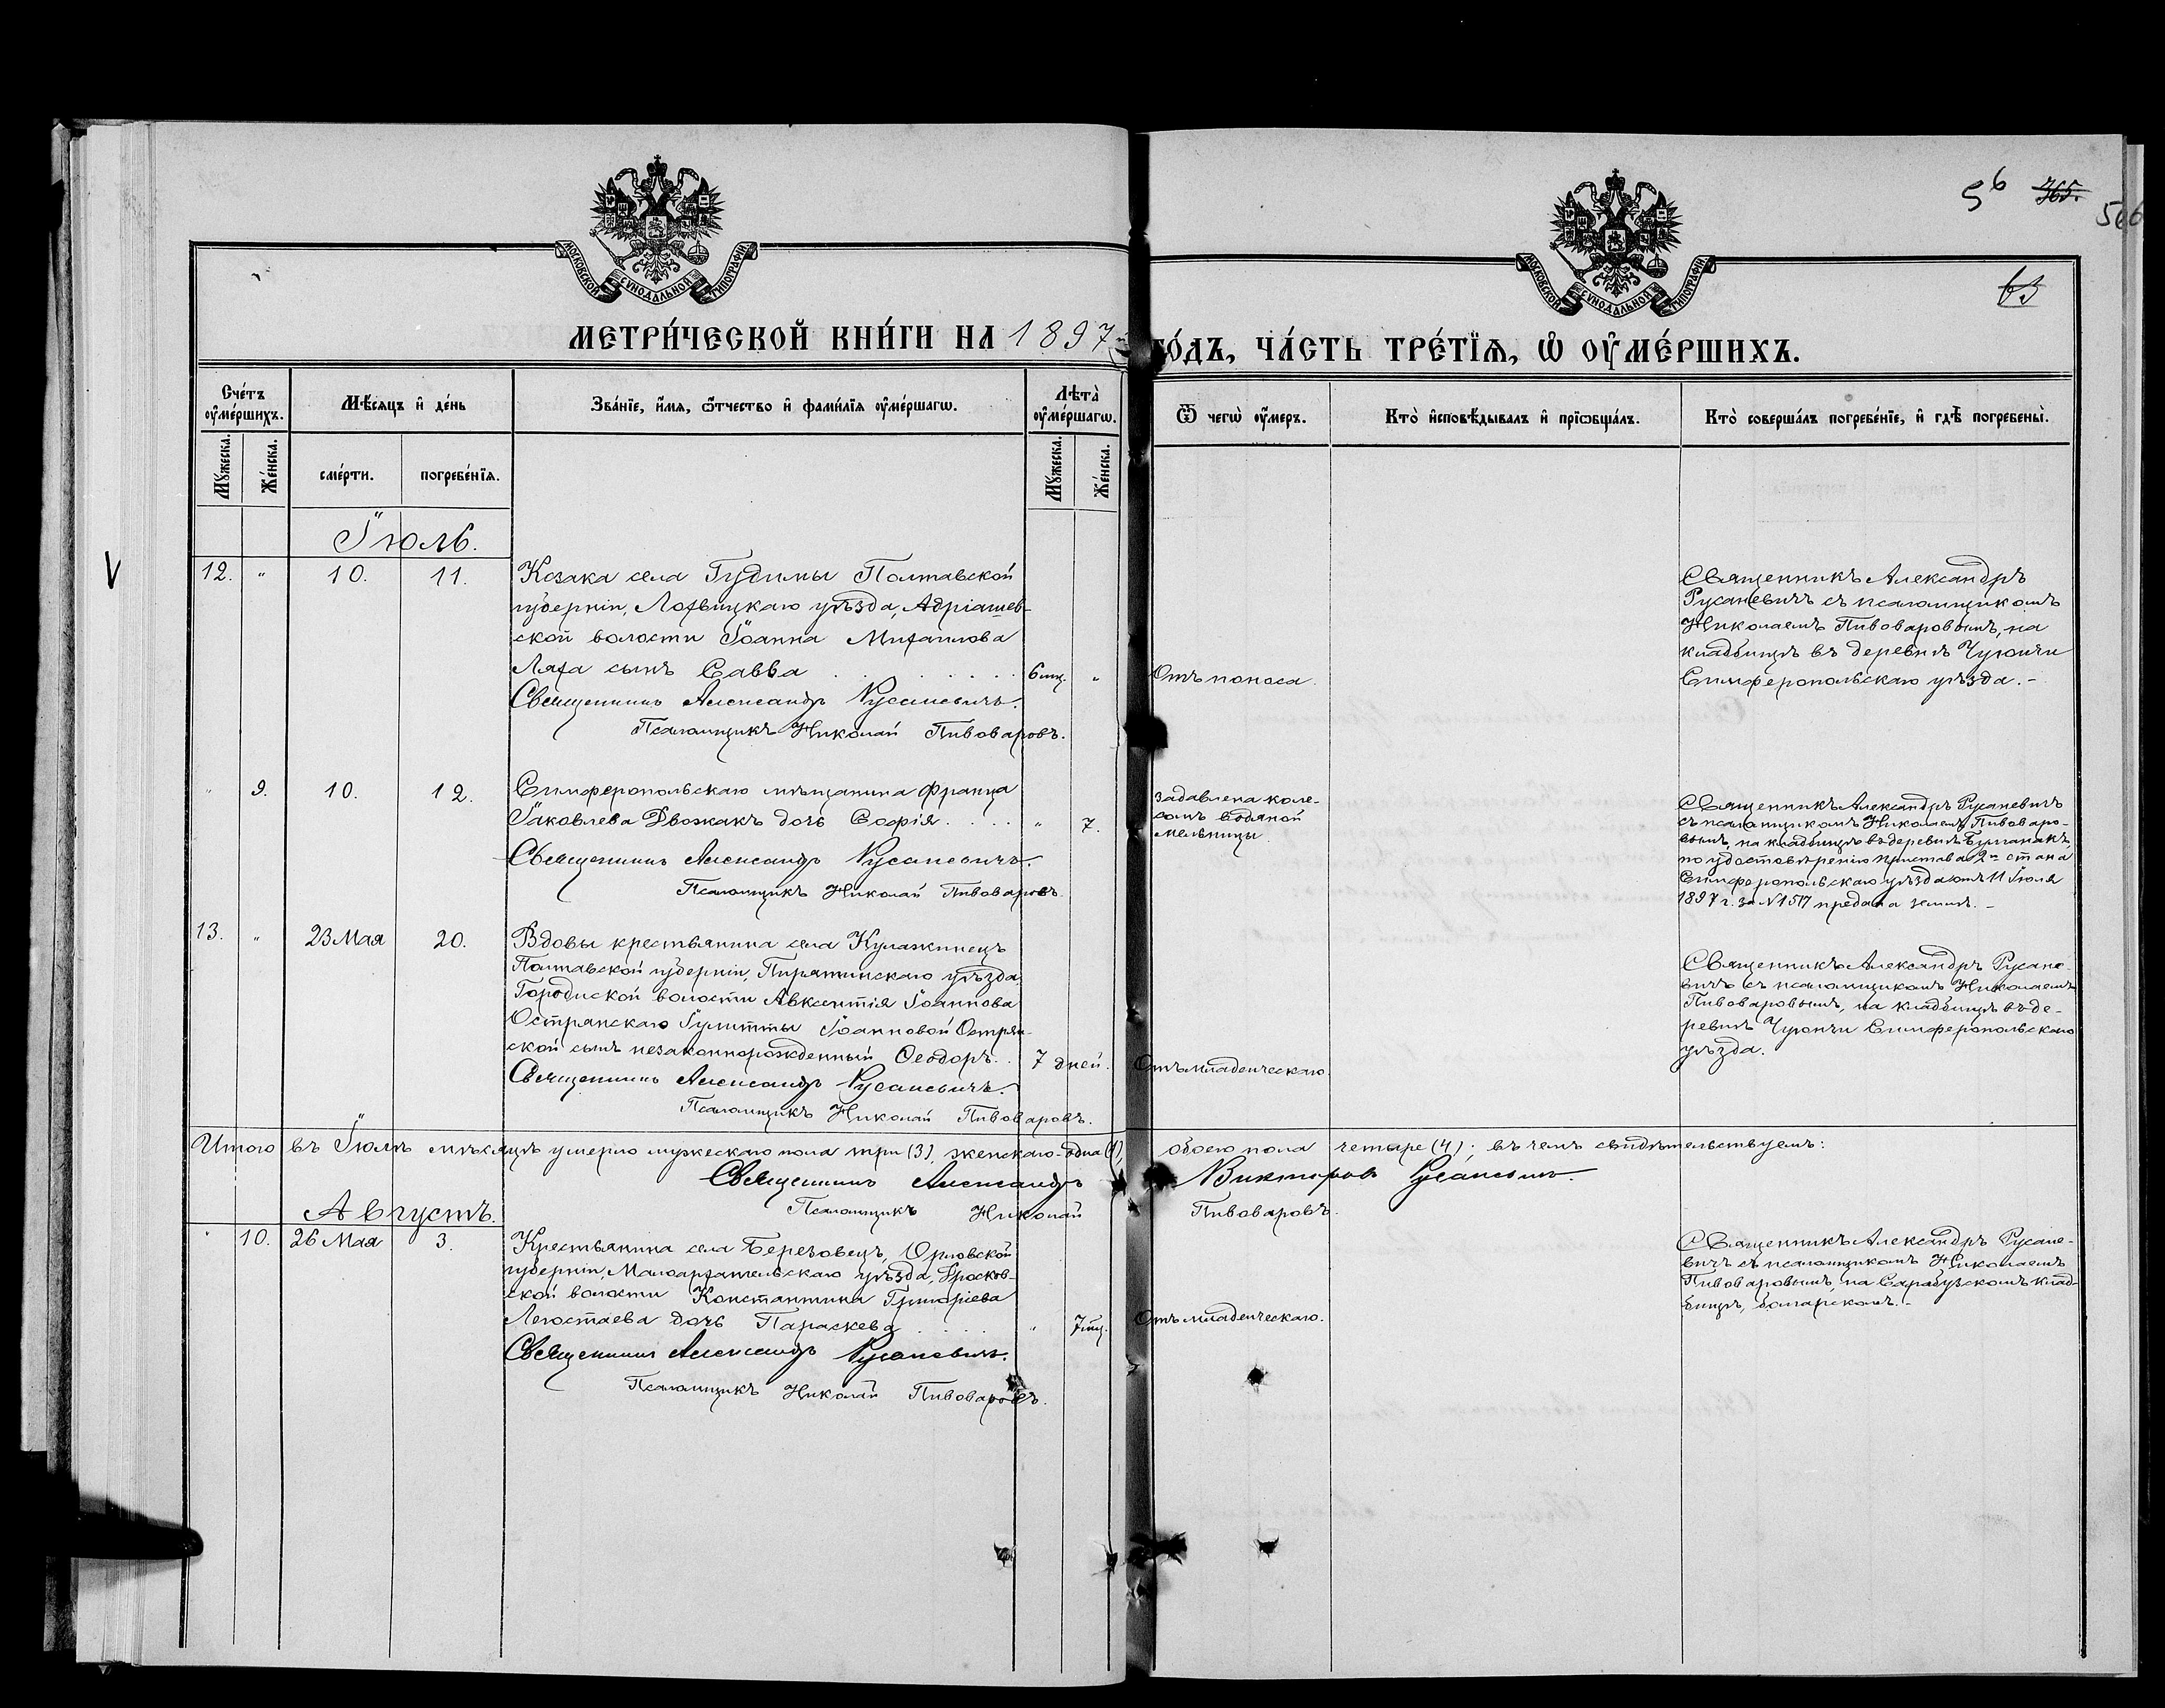 56 365.
566
63
МОСКОВСКОЙ СѴНОДАЛЬНОЙ ТИПОГРАФІИ
МОСКОВСКОЙ СѴНОДАЛЬНОЙ ТИПОГРАФІИ
МЕТРИ́ЧЕСКОЙ КНИ́ГИ НА 1897
ГО́ДЪ, ЧА́СТЬ ТРЕ́ТЇѦ, Ѡ҆ ОУ҆МЕ́РШИХЪ.
Сче́тъ оу҆ме́ршихъ.
Мѣ́сѧцъ и҆ де́нь
Зва́нїе, и҆́мѧ, ѻ҆́тчество и҆ фами́лїѧ оу҆ме́ршагѡ.
Лѣ́та̀ оу҆ме́ршагѡ.
Ѿ чегѡ̀ оу҆́меръ.
Кто̀ и҆сповѣ́дывалъ и҆ прїѡбща́лъ.
Кто̀ соверша́лъ погребе́нїе, и҆ гдѣ̀ погребены̀.
Мꙋ́жеска.
Же́нска.
сме́рти.
погребе́нїѧ.
Мꙋ́жеска.
Же́нска.
Іюль.
12. " 10. 11.
Козака села Гудимы Полтавской
губерніи, Лохвицкаго уѣзда, Адріашев-
ской волости Іоанна Михаилова
Ляха сынъ Савва . . . . . . 6 мц. "
Отъ поноса.
Священникъ Александръ Русаневичъ.
Псаломщикъ Николай Пивоваровъ.
Священникъ Александръ
Русаневичъ съ псаломщикомъ
Николаемъ Пивоваровымъ, на
кладбищѣ въ деревнѣ Чуюнчи
Симферопольскаго уѣзда.-
" 9. 10. 12.
Симферопольскаго мѣщанина Франца
Іаковлева Двожакъ дочь Софія . . . . " 7.
Священникъ Александръ Русаневичъ.
Псаломщикъ Николай Пивоваровъ.
задавлена коле-
сомъ водяной
мельницы
Священникъ Александръ Русаневичъ
съ псаломщикомъ Николаемъ Пивоваро-
вымъ, на кладбищѣ въ деревнѣ Бурганакъ,
по удостовѣренію пристава 2го стана
Симферопольскаго уѣзда отъ 11 Іюля
1897 г. за № 1517 предана землѣ.-
13. " 23 Мая 20.
Вдовы крестьянина села Кулажинецъ
Полтавской губерніи, Пирятинскаго уѣзда,
Городиской волости Авксентія Іоаннова
Острянскаго Іулитты Іоанновой Острян-
ской сынъ незаконнорожденный Ѳеодоръ. . 7 дней.
Отъ младенческаго.
Священникъ Александръ Русаневичъ.
Псаломщикъ Николай Пивоваровъ.
Священникъ Александръ Русане-
вичъ съ псаломщикомъ Николаемъ
Пивоваровымъ, на кладбищѣ въ де-
ревнѣ Чуюнчи Симферопольскаго
уѣзда.
Итого въ Іюлѣ мѣсяцѣ умерло мужескаго пола три (3), женскаго - одна (1), обоего пола четыре (4); въ чемъ свидѣтельствуемъ:
Священникъ Александръ Викторовъ Русаневичъ.
Псаломщикъ Николай Пивоваровъ.
Августъ.
" 10. 26 Мая 3.
Крестьянина села Березовецъ, Орловской
губерніи, Малоархангельскаго уѣзда,
ской волости Константина Григоріева
Легостаева дочь Параскева . . . . " 7 мц.
Отъ младенческаго.
Священникъ Александръ Русаневичъ.
Псаломщикъ Николай Пивоваровъ.
Священникъ Александръ Русане-
вичъ съ псаломщикомъ Николаемъ
Пивоваровымъ, на Сарабузскомъ клад-
бищѣ, болгарскомъ.-